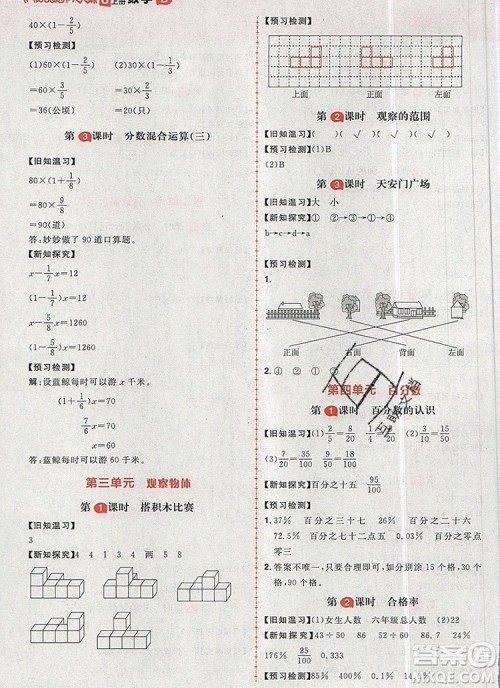 上册 数学
40×(1-2/5)
【预习检测】
(1)60×(1-2/5)  (2)30×(1-1/3)
=60×3/5  =30×2/3
=36(公顷)  =20(只)
第3课时 分数混合运算(三)
【旧知温习】
80×(1+1/8)
=80×9/8
=90(道)
答:妙妙做了90道口算题。
【新知探究】
x-1/7x=12
(1-1/7)x=12
x-5/8x=1260
(1-5/8)x=1260
【预习检测】
解:设蓝鲸每时可以游x千米。
(1+1/6)x=70
7/6x=70
x=60
答:蓝鲸每时可以游60千米。
第三单元 观察物体
第1课时 搭积木比赛
【旧知温习】
3
【新知探究】4 4 1 3 4 两 5 8
【预习检测】
上面 正面 左面
第2课时 观察的范围
【旧知温习】( ) (√) (√) (√)
【预习检测】(1)B
(2)B
第3课时 天安门广场
【旧知温习】大 小
【新知探究】②→③→④→①
b→c→d→a
【预习检测】
1.
正面 右面 背面 左面
2. ④ ② ① ③
第四单元 百分数
第1课时 百分数的认识
【旧知温习】
【新知探究】
【预习检测】
1. 37% 百分之三十七 26% 百分之二十六
72.5% 百分之七十二点五 110% 百分之一百一十
2.
3. 答案不唯一,只要合理即可,如分别涂15个格,30个格,90个格。
第2课时 合格率
【旧知温习】(1)女生人数 六年级总人数 (2)22
176% 25/100 0.333
【预习检测】
答案圈
MXQE.COM